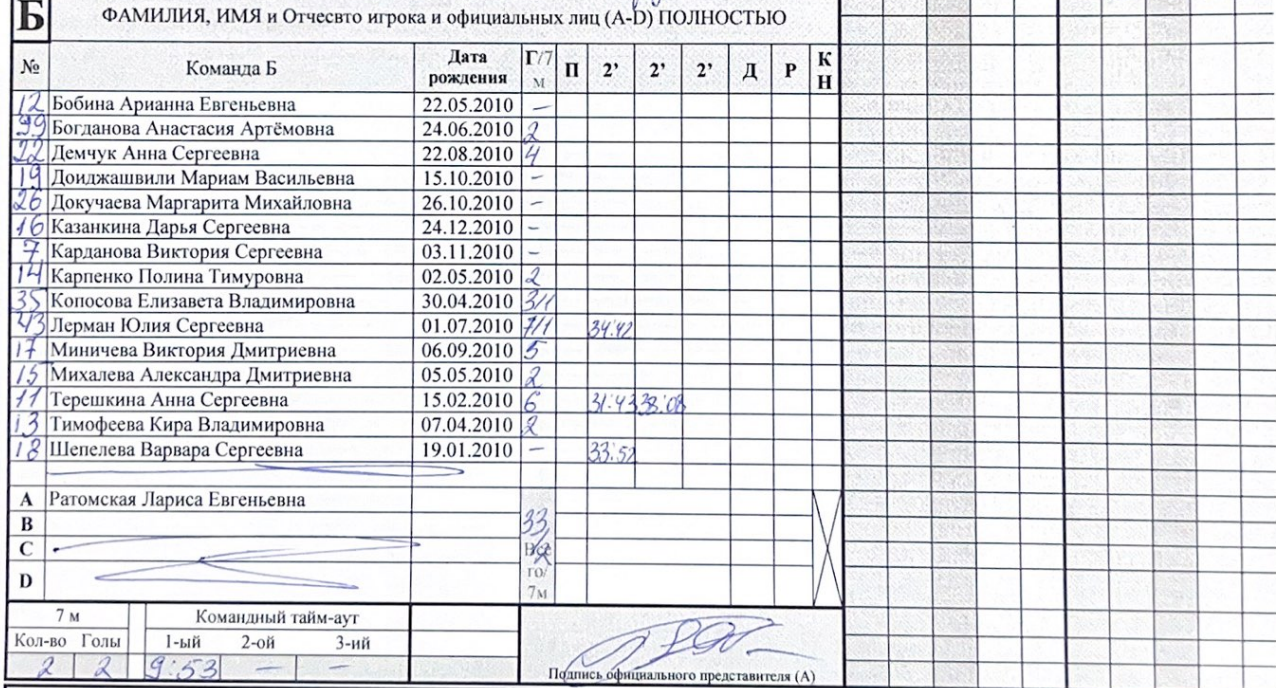 Б ФАМИЛИЯ, ИМЯ и Отчесвто игрока и официальных лиц (A-D) ПОЛНОСТЬЮ
№ Команда Б Дата рождения Г/7 м П 2' 2' 2' Д Р К Н
12 Бобина Арианна Евгеньевна 22.05.2010 –
99 Богданова Анастасия Артёмовна 24.06.2010 2
22 Демчук Анна Сергеевна 22.08.2010 4
19 Доиджашвили Мариам Васильевна 15.10.2010 –
26 Докучаева Маргарита Михайловна 26.10.2010 –
16 Казанкина Дарья Сергеевна 24.12.2010 –
7 Карданова Виктория Сергеевна 03.11.2010 –
14 Карпенко Полина Тимуровна 02.05.2010 2
35 Копосова Елизавета Владимировна 30.04.2010 3/1
43 Лерман Юлия Сергеевна 01.07.2010 7/1 34:42
17 Миничева Виктория Дмитриевна 06.09.2010 5
15 Михалева Александра Дмитриевна 05.05.2010 2
11 Терешкина Анна Сергеевна 15.02.2010 6 31:43 38:08
13 Тимофеева Кира Владимировна 07.04.2010 2
18 Шепелева Варвара Сергеевна 19.01.2010 – 33:52
A Ратомская Лариса Евгеньевна
B 33
C Все
D го/ 7м
7 м Командный тайм-аут
Кол-во Голы 1-ый 2-ой 3-ий
2 2 9:53 – –
Подпись официального представителя (А)